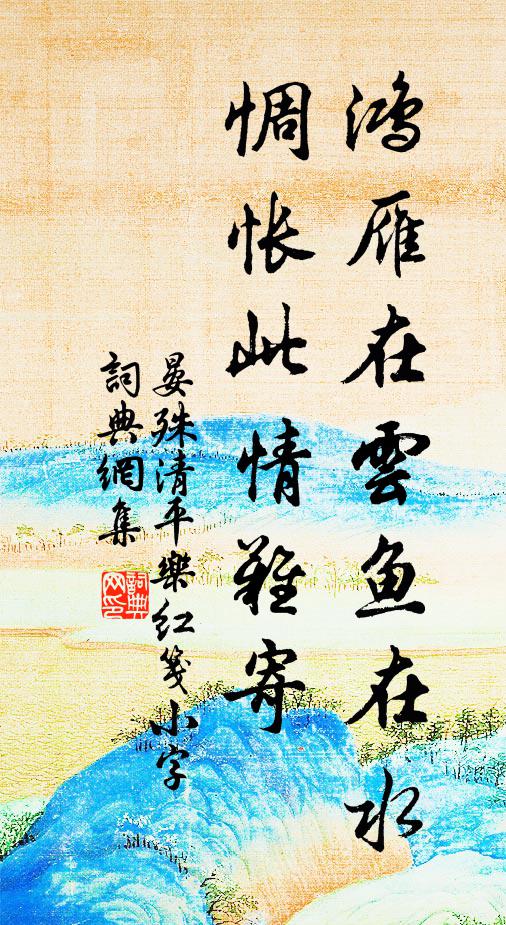 鴻雁在雲魚在水
惆悵此情難寄
晏殊清平樂紅箋小字
詞典網集
詞典
网印